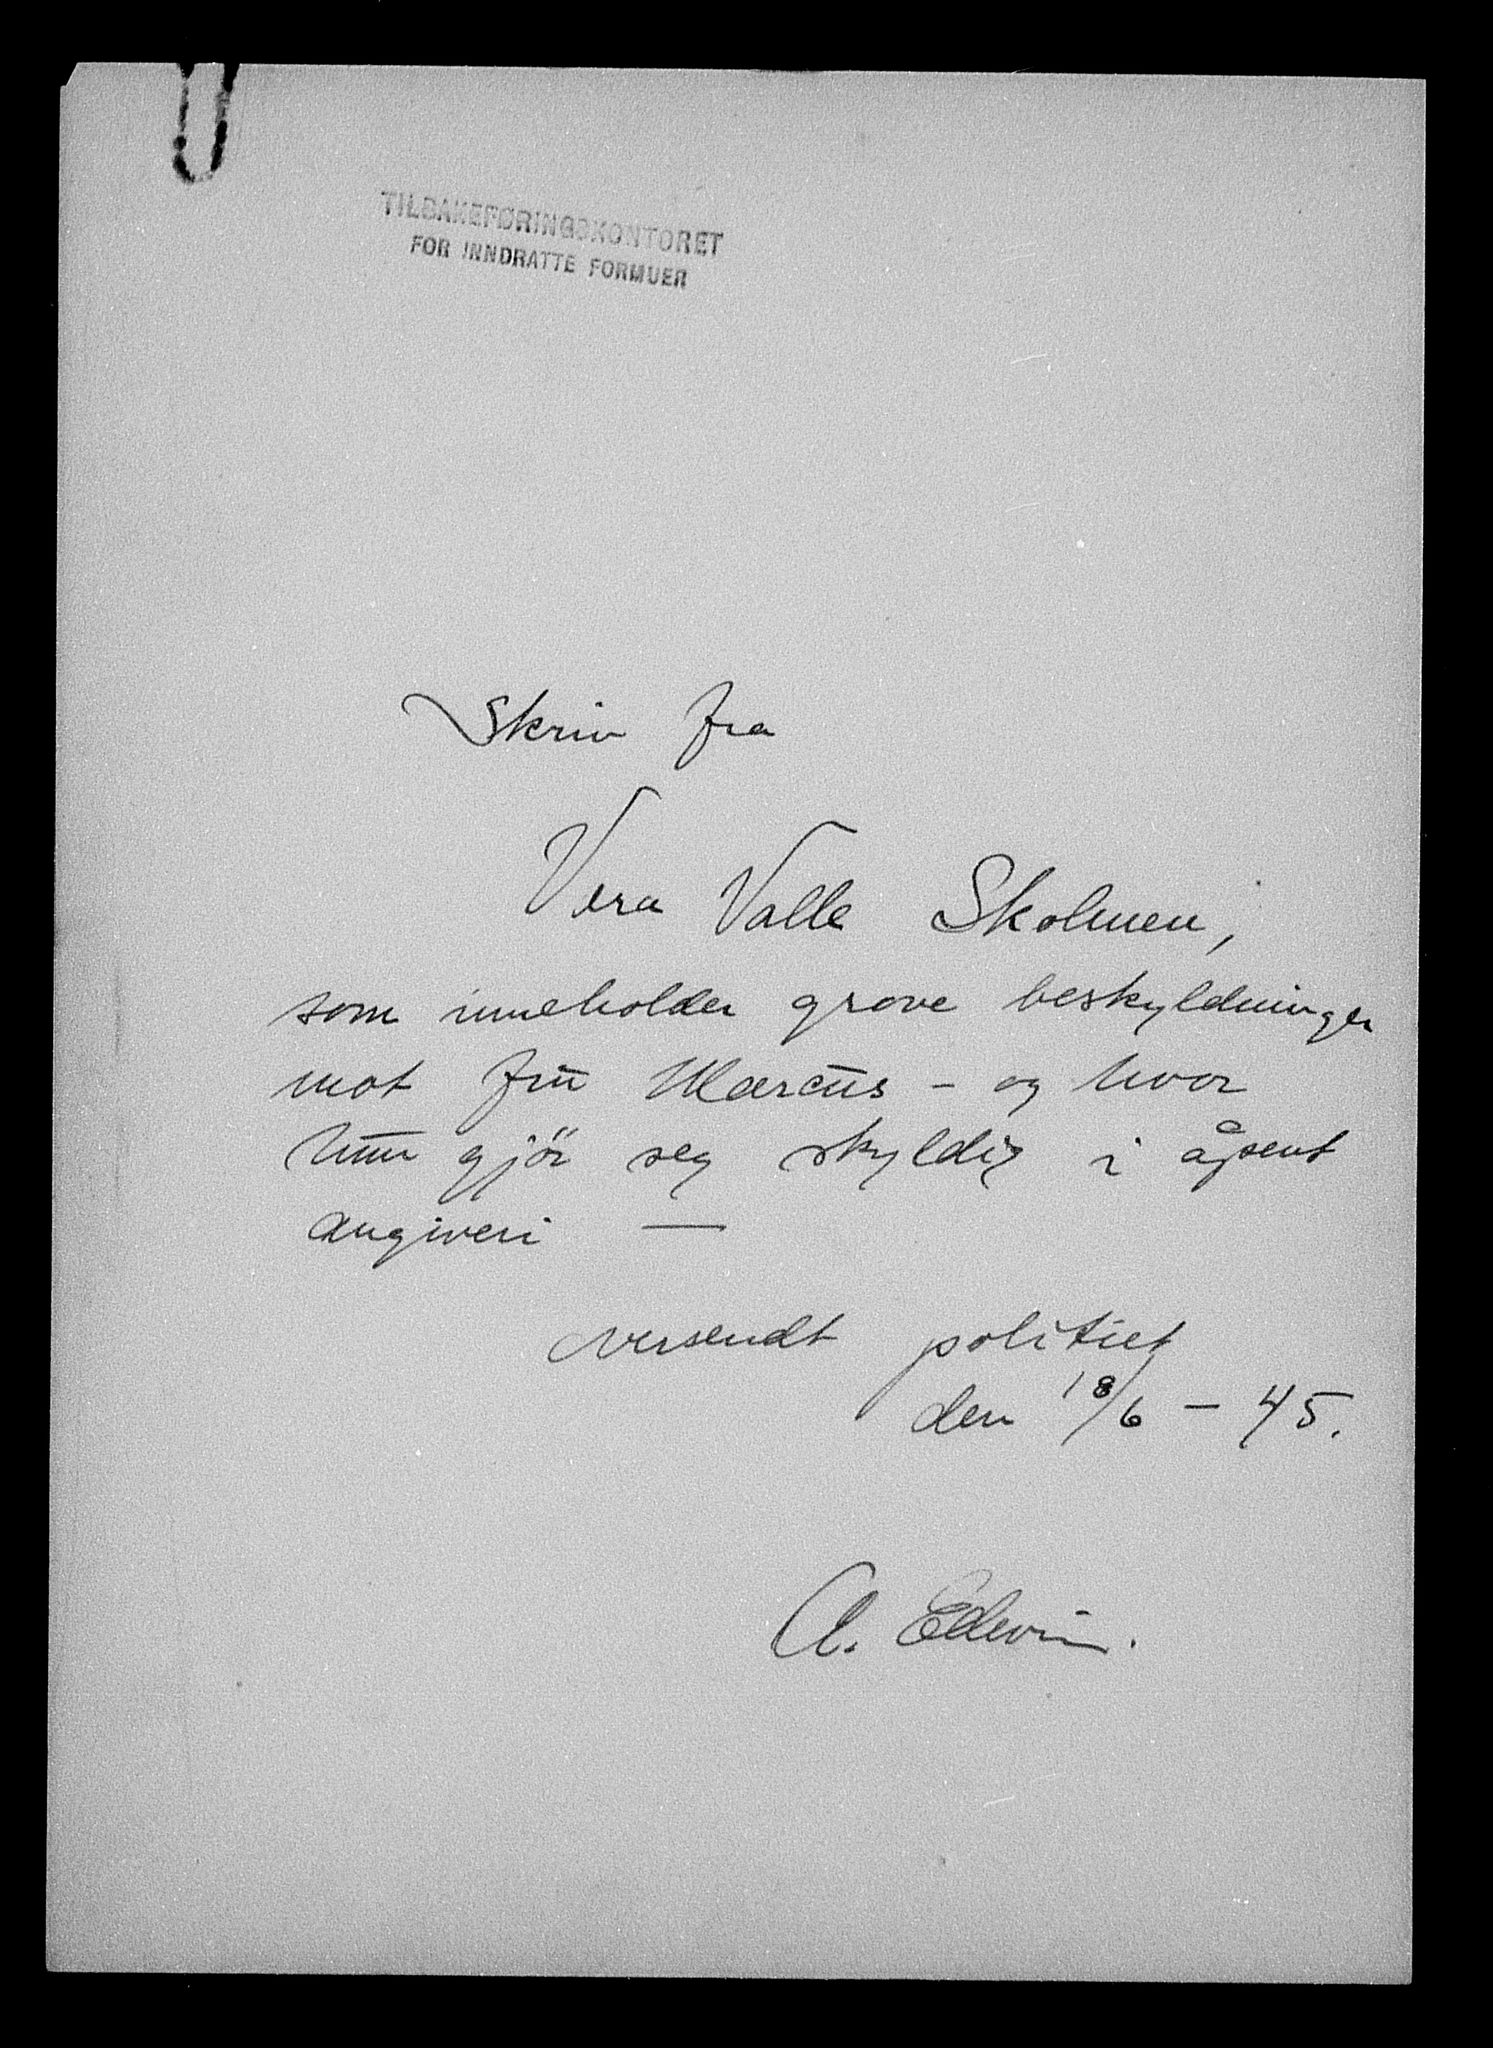 TILBAKEFØRINGSKONTORET
FOR INNDRATTE FORMUER
Skriv fra
Vera Valle Skolmen,
som inneholder grove beskyldninger
mot frū Marcūs - og hvor
hūn gjör seg skyldig i åpent
angiveri —
oversendt politiet
den 18/6 - 45.
A. Edevin.